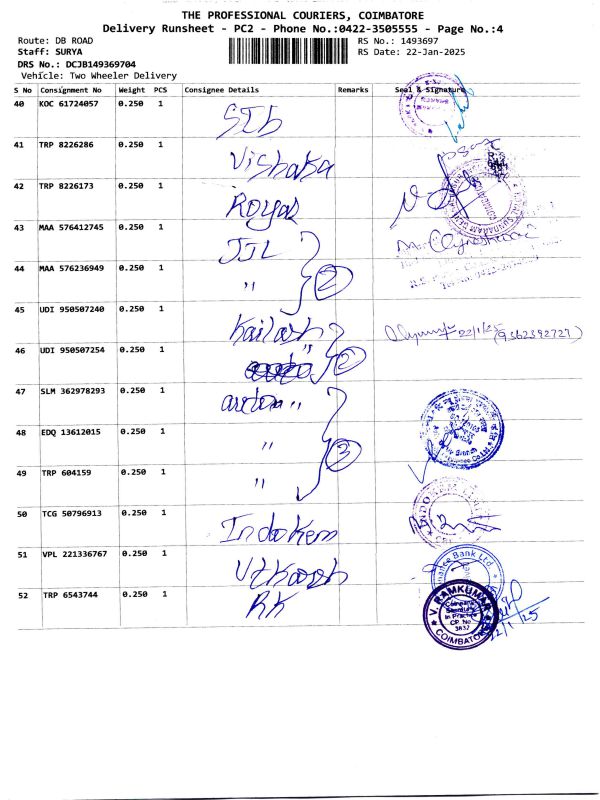 THE PROFESSIONAL COURIERS, COIMBATORE
Delivery Runsheet - PC2 - Phone No.:0422-3505555 - Page No.:4
Route: DB ROAD RS No.: 1493697
Staff: SURYA RS Date: 22-Jan-2025
DRS No.: DCJB149369704
Vehicle: Two Wheeler Delivery
S No Consignment No Weight PCS Consignee Details Remarks Seal & Signature
40 KOC 61724057 0.250 1
41 TRP 8226286 0.250 1 Vishaka
42 TRP 8226173 0.250 1 Royas
43 MAA 576412745 0.250 1 JJL
44 MAA 576236949 0.250 1 " 2
45 UDI 950507240 0.250 1 Kailash 22/1/25 (9362392727)
46 UDI 950507254 0.250 1 " 2
47 SLM 362978293 0.250 1 "
48 EDQ 13612015 0.250 1 " 3
49 TRP 604159 0.250 1 "
50 TCG 50796913 0.250 1 Indokem
51 VPL 221336767 0.250 1 Utkarsh
52 TRP 6543744 0.250 1 RK
V. RAMKUMAR
Company
Secretary
in Practice
CP. No
3832
COIMBATORE
22/1/25